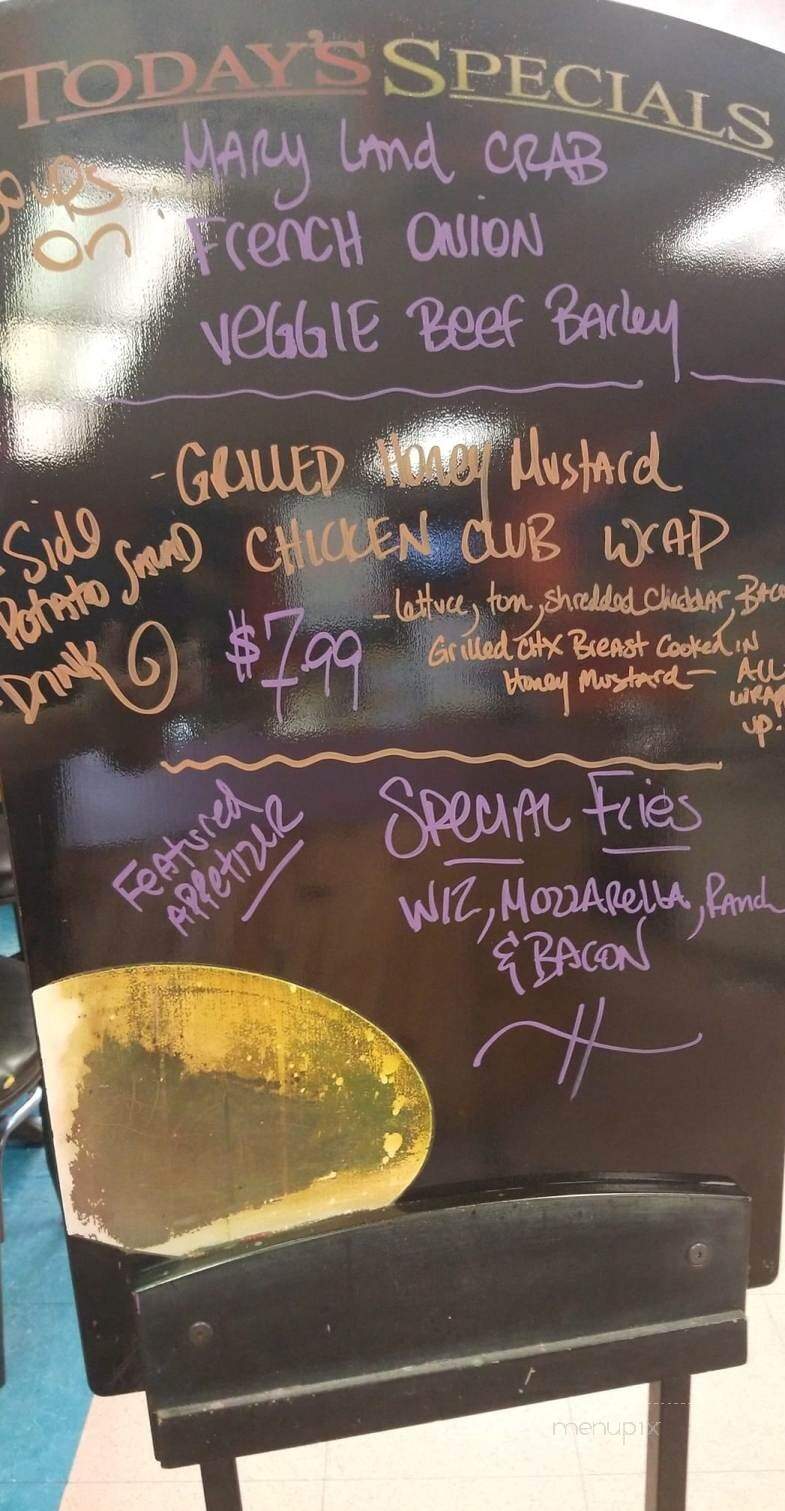 TODAY'S SPECIALS
Soups
On
MARyLAnd CRAB
French ONION
VEGGIE Beef Barley
- GRILLED Honey Mustard
CHICKEN CLUB WRAP
- Side
Potato Salad
- Drink
$7.99
- lettuce, tom, shredded Cheddar, Baco
Grilled CHX Breast Cooked IN
Honey Mustard - ALL
WRAP
up!
Featured
Appetizer
Special Fries
WIZ, MOZZARELLA, Ranch
& BACON
menupix